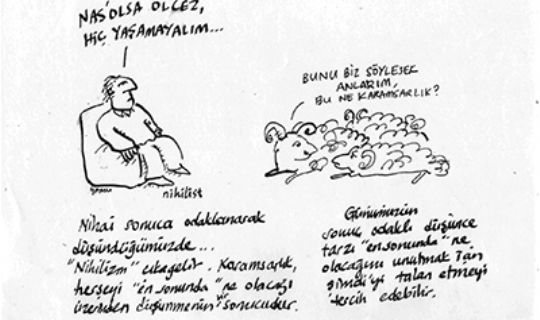 NAS'OLSA ÖLCEZ,
HİÇ YAŞAMAYALIM...
BUNU BİZ SÖYLESEK
ANLARIM,
BU NE KARAMSARLIK?
nihilist
Nihai sonuca odaklanarak
düşündüğümüzde...
"Nihilizm" çıkagelir. Karamsarlık,
herşeyi "en sonunda" ne olacağı
üzerinden düşünmenin sonucudur.
Günümüzün
sonuç odaklı düşünce
tarzı "en sonunda" ne
olacağını unutmak için
şimdi'yi talan etmeyi
tercih edebilir.